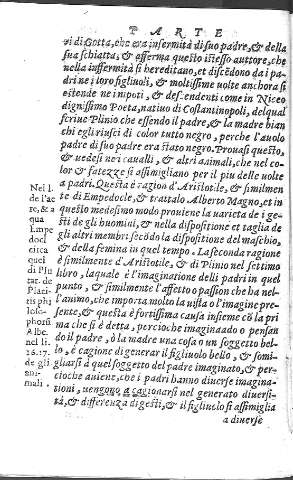 PARTE
ri di Gotta, che era infermità di suo padre, & della
sua schiatta; & afferma questo istesso auttore, che
nella infermità si hereditano, et discēdono da i pa-
dri ne i loro figliuoli, & moltissime uolte anchora si
estende ne i nipoti, & descendenti come in Niceo
dignissimo Poeta, natiuo di Costantinopoli, del qual
scriue Plinio che essendo il padre, & la madre bian
chi egli riuscì di color tutto negro, perche l'auolo
padre di suo padre era stato negro. Prouasi questo,
& uedesi ne i caualli, & altri animali, che nel co-
lor & fatezze si assimigliano per il piu delle uolte
a padri. Questa è ragion d'Aristotile, & similmen
te di Empedocle, & trattalo Alberto Magno, et in
questo medesimo modo prouiene la uarietà de i ge-
sti de gli huomini, & nella dispositione et taglia de
gli altri membri secōdo la dispositione del maschio,
& della femina in quel tempo. La seconda ragione
è similmente d'Aristotile, & di Plinio nel settimo
libro, laquale è l'imaginatione delli padri in quel
punto, & similmente l'affetto o passion che ha nel-
l'animo, che importa molto la uista o l'imagine pre-
sente, & questa è fortissima causa insieme cō la pri
ma che si è detta, percioche imaginādo o pensan
do il padre, ò la madre una cosa o un soggetto bel-
lo, è cagione di generar il figliuolo bello, & somi-
gliarsi à quel soggetto del padre imaginato, & per-
cioche auiene, che i padri hanno diuerse imagina-
tioni, uengono a cagionarsi nel generato diuersi-
tà, & differenza di gesti, & il figliuolo si assimiglia
a diuerse
Nel l.
de l'ac
re, & a
qua
Empe
docl.
circa
quel
di Plu
tar. de
Placi-
tis phi
loso-
phorū
Albe.
nel li.
26.17.
de gli
ani-
mali.